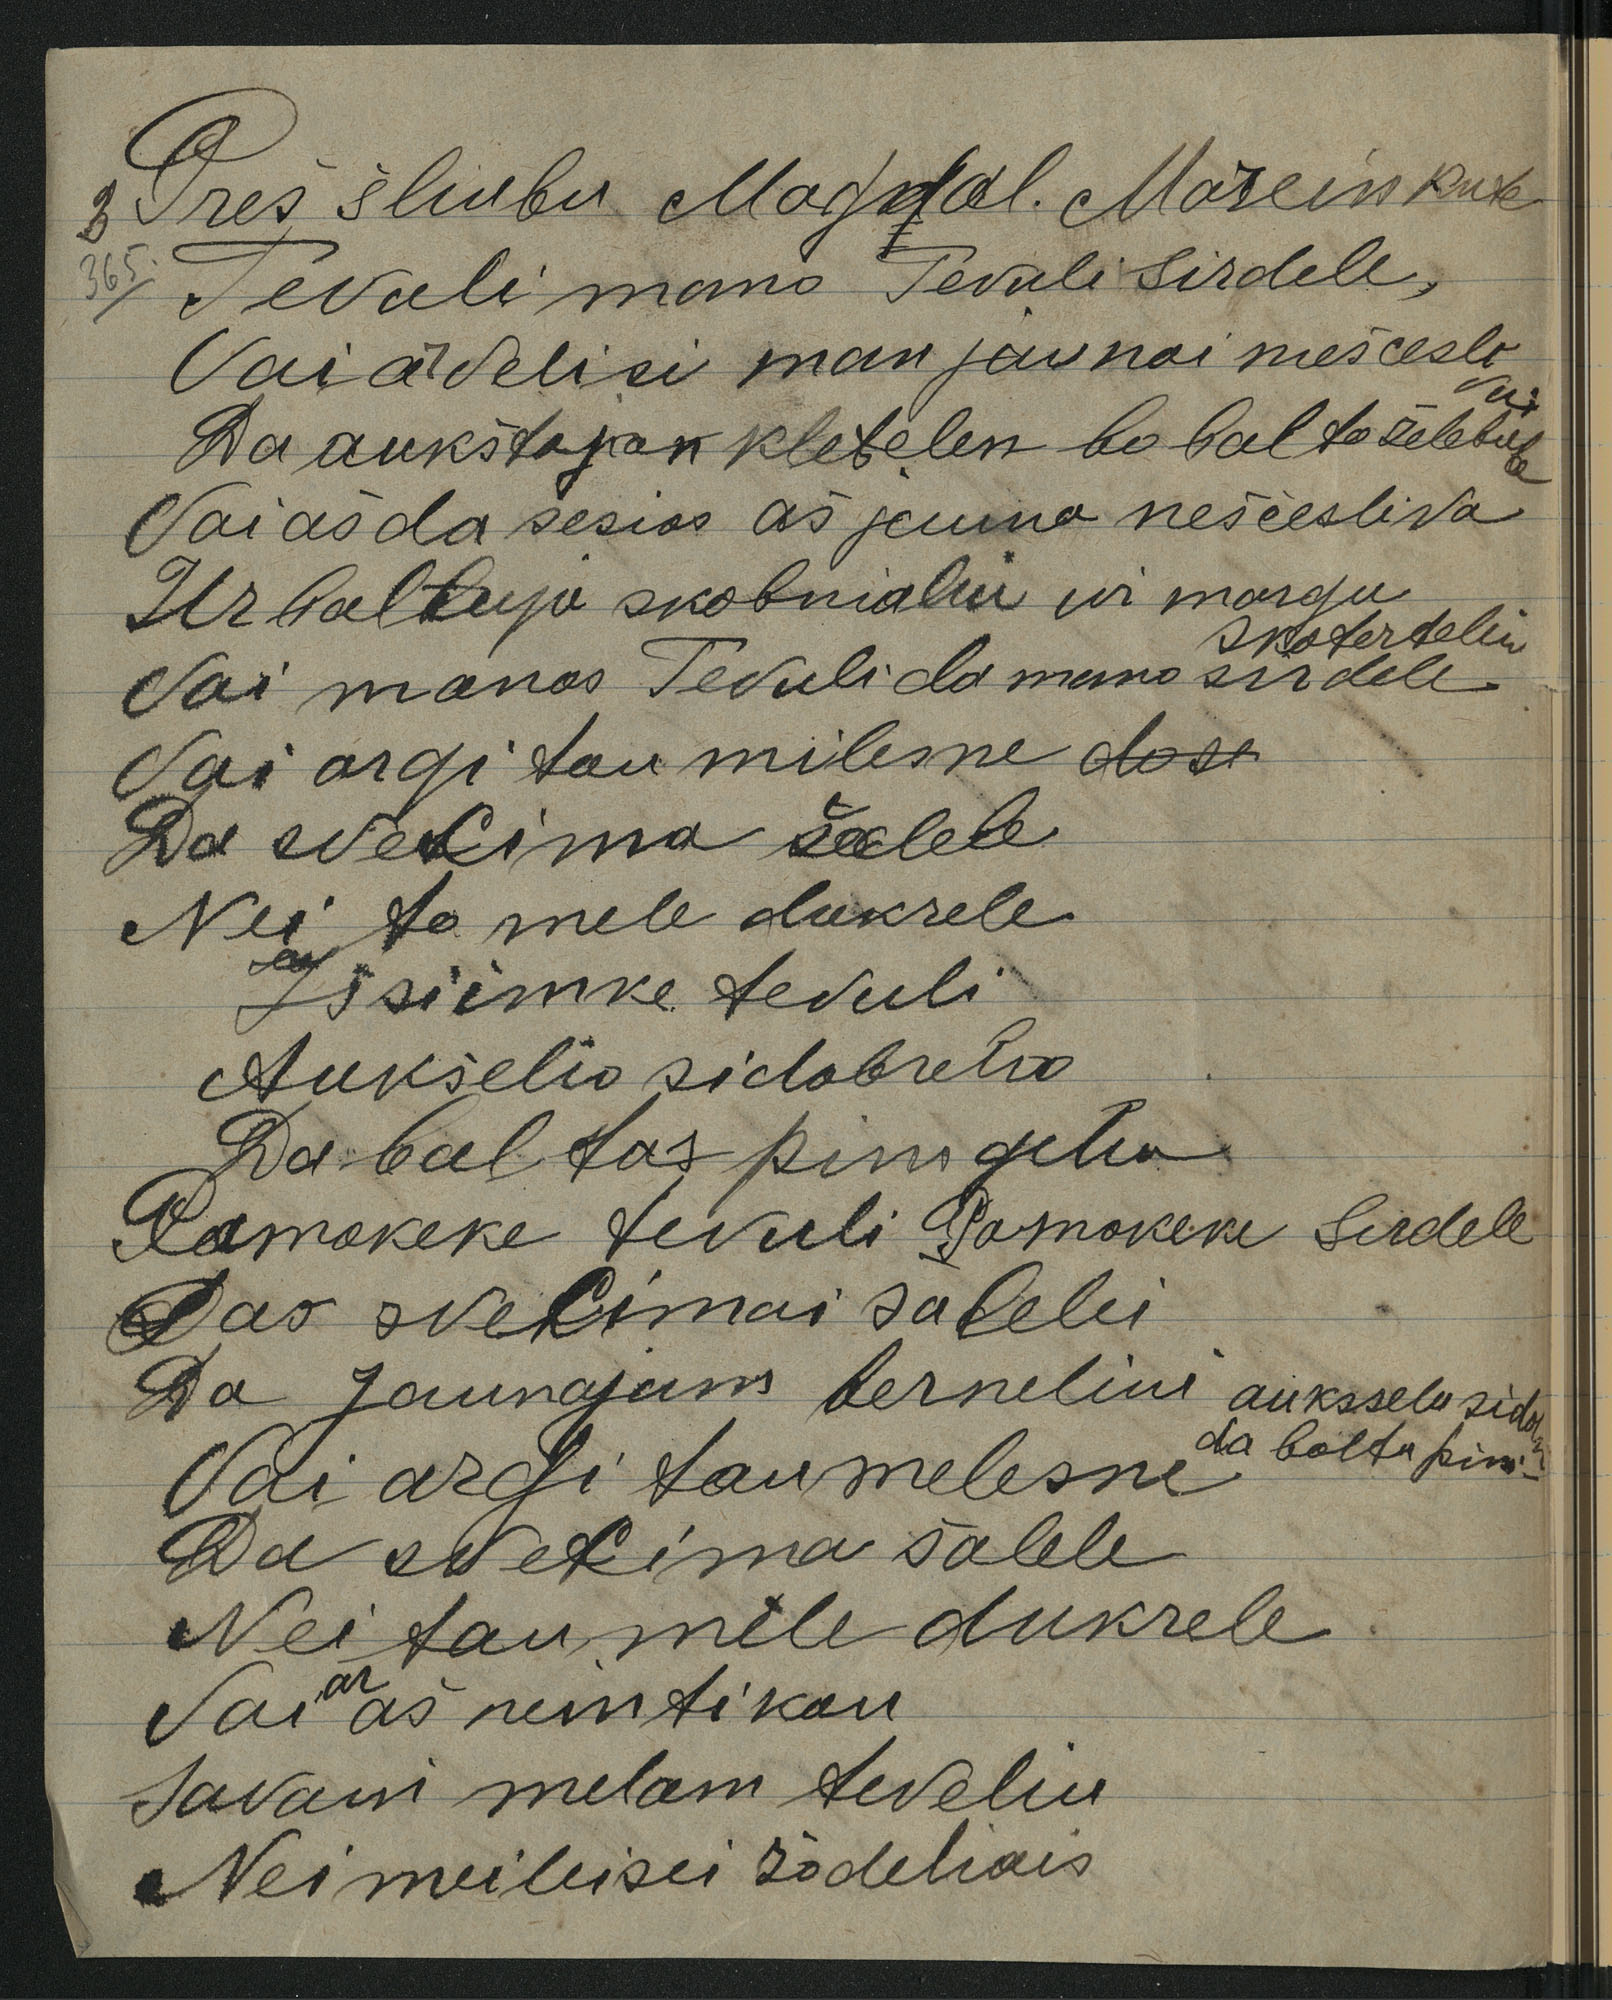 Preš šliubu Magdal. Mareinkute
365.
Tevali mano Tevuli sirdele,
Vai ar velisi man jaunai neščeslivai
Da aukštajan kletelen bo balto
Vai aš da sesios aš jauna neščesliva
Uz baltuja skobnialiu ui margu
skoterteliu
Vai manas Tevuli da mano sirdele
Vai argi tau milesne dose
Da svetima šalele
Nei to mele dukrele
Išsiimke tevuli
Aukšelio sidabrelio
Da baltas pinigeliu
Pamokeke tevuli Pamokeke Sirdele
Dao svetimai šalelei
Da Jaunajam bernelini auksselu sidab
da baltu pini-
Vai argi tau melesne
Da svetima šalele
Nei tau mele dukrele
Vai ar aš neintikau
Savam melam teveliu
Nei meileisei žodeliais